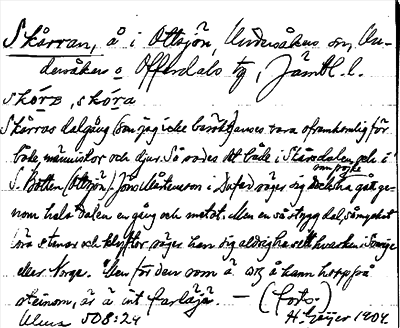 Skärran, å i Ottsjön, Undersåkers sn, Un-
dersåkers o Offerdals tg, Jämtl. l.
skórə, skóra
Skärras dalgång (som jag icke besökt) anses vara oframkomlig för
både människor och djur. Så sades det både i Skärsdalen och i
S. Botten (Ottsjö). Jöns Mårtensson i säger sig som pojke ha gått ge-
nom hela dalen en gång och metat. Men en så stygg dal, så mycket
stenar och klyftor, säger han sig aldrig ha sett hvarken i Sverige
eller Norge. "Men för den som å hann hoppa från
steinom, är ä int farlägä. — (foto.)
Ulma 508:24 H. Geijer 1904.